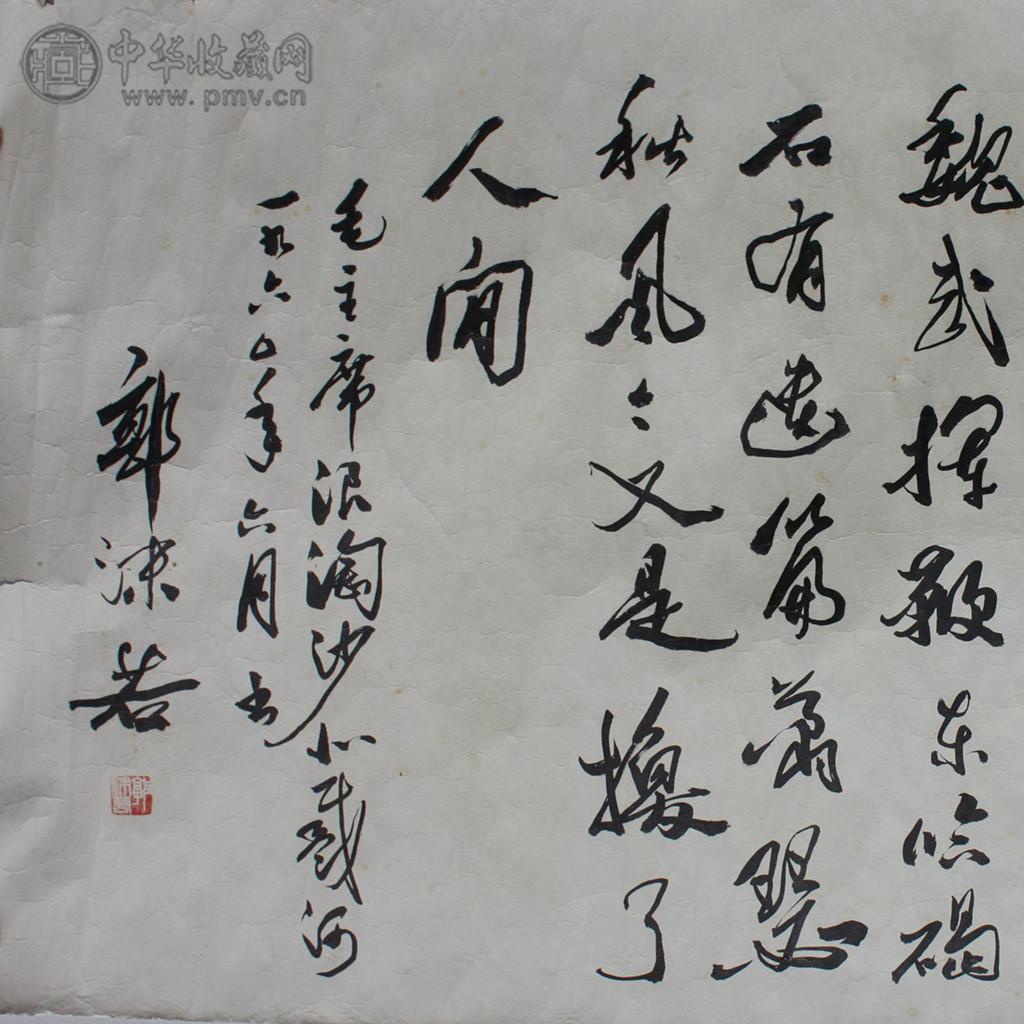 魏武揮鞭东临碣
石有遗篇萧瑟
秋風今又是換了
人间
毛主席浪淘沙北戴河
一九六〇年六月书
郭沫若
郭沫若
中华收藏网
www.pmv.cn